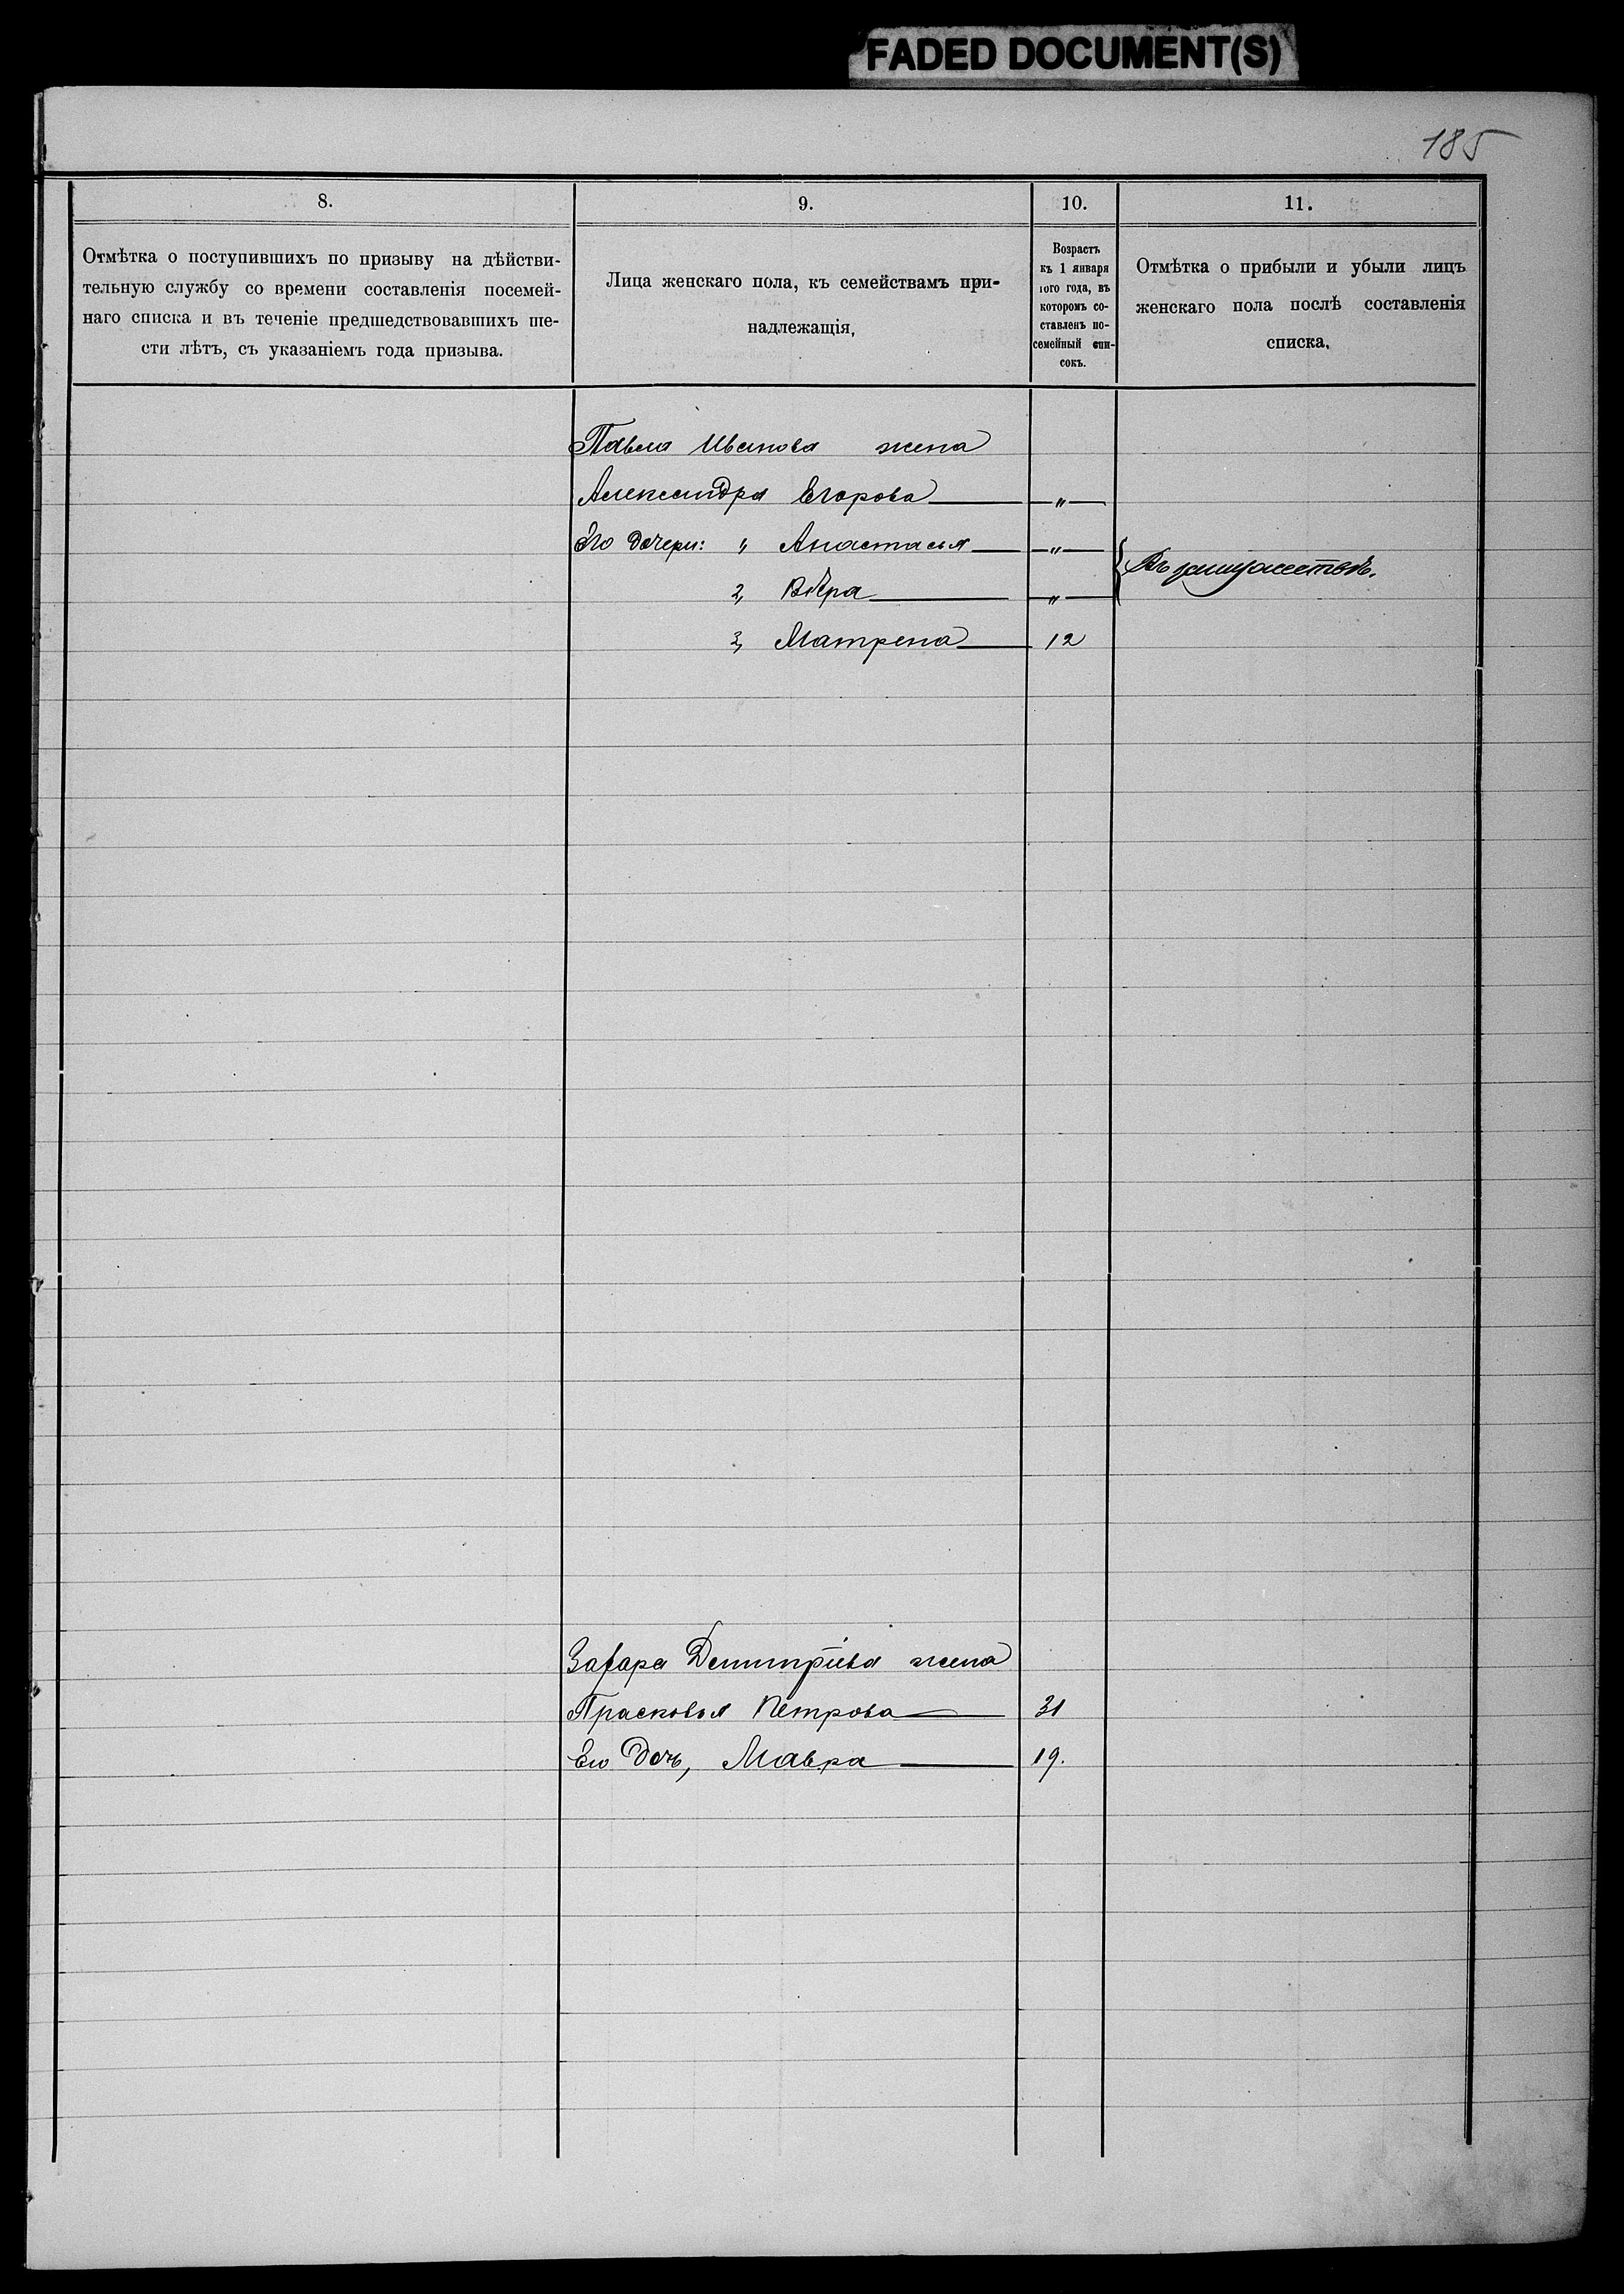 FADED DOCUMENT(S)
185
8.
9.
10.
11.
Отмѣтка о поступившихъ по призыву на дѣйстви-
тельную службу со времени составленія посемей-
наго списка и въ теченіе предшедствовавшихъ ше-
сти лѣтъ, съ указаніемъ года призыва.
Лица женскаго пола, къ семействамъ при-
надлежащія,
Возрастъ
къ 1 января
того года, въ
которомъ со-
ставленъ по-
семейный спи-
сокъ.
Отмѣтка о прибыли и убыли лицъ
женскаго пола послѣ составленія
списка.
Павла Иванова жена
Александра Егорова — „ —
Его дочери: „ Анастасья — „ —
Въ замужествѣ.
2, Вѣра — „ —
3, Матрена — 12
Захара Дмитріева жена
Прасковья Петрова — 31
Его дочь, Мавра — 19.